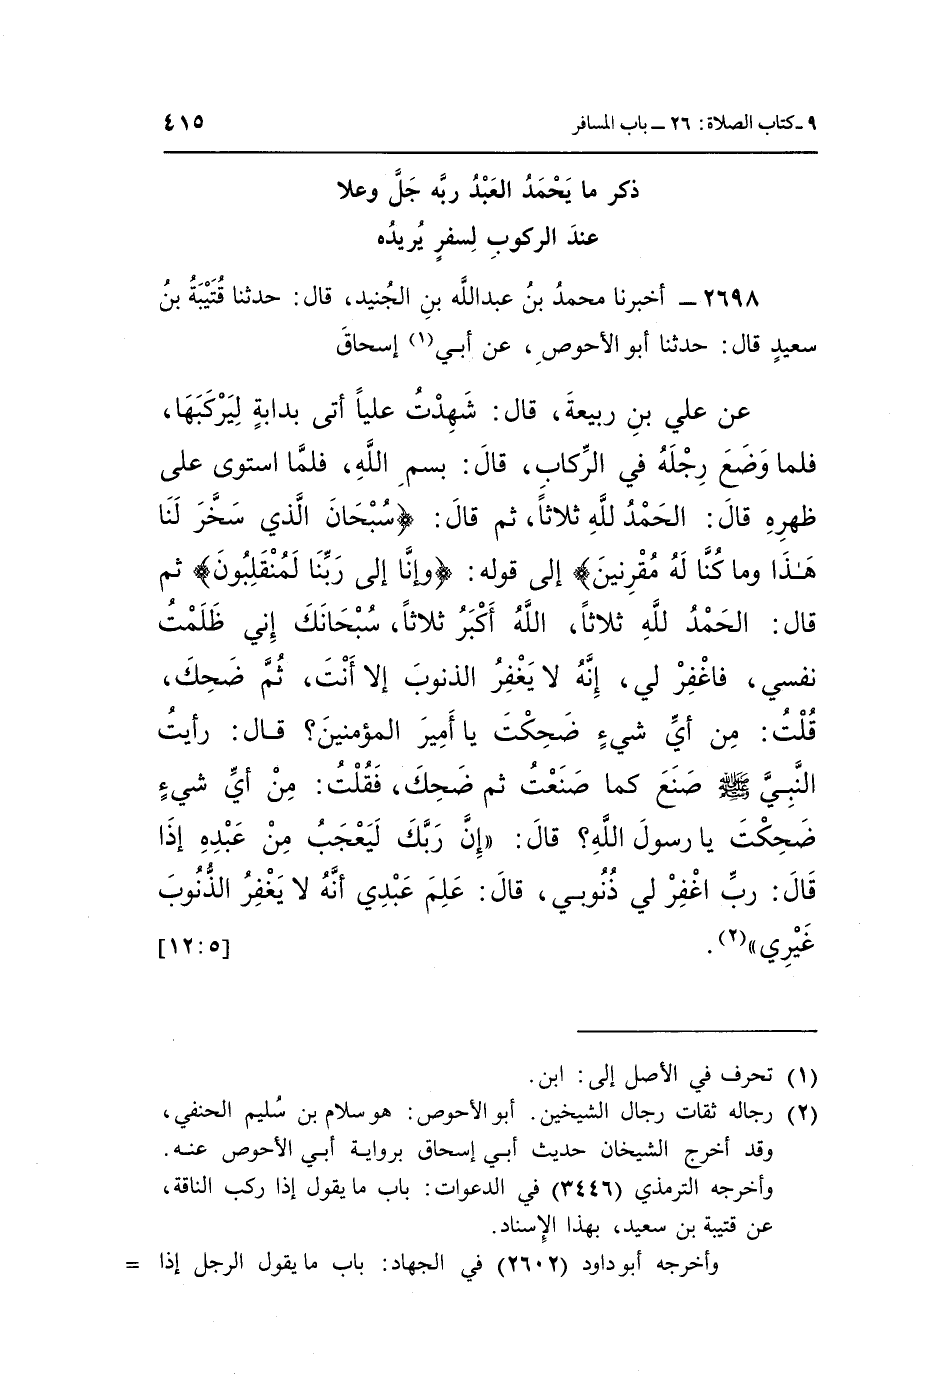 ٩ ـ كتاب الصلاة: ٢٦ ـ باب المسافر ٤١٥
ذكر ما يَحْمَدُ العَبْدُ ربَّه جَلَّ وعلا
عندَ الركوبِ لِسفرٍ يُريدُه
٢٦٩٨ ـ أخبرنا محمدُ بنُ عبداللَّه بنِ الجُنيد، قال: حدثنا قُتَيْبَةُ بنُ
سعيدٍ قال: حدثنا أبو الأحوصِ، عن أبي(١) إسحاقَ
عن علي بنِ ربيعةَ، قال: شَهِدْتُ علياً أتى بدابةٍ لِيَرْكَبَهَا،
فلما وَضَعَ رِجْلَهُ في الرِّكابِ، قالَ: بسمِ اللَّهِ، فلمَّا استوى على
ظهرِهِ قالَ: الحَمْدُ للَّهِ ثلاثاً، ثم قالَ: ﴿سُبْحَانَ الَّذي سَخَّرَ لَنَا
هَـٰذَا وما كُنَّا لَهُ مُقْرِنينَ﴾ إلى قوله: ﴿وإنَّا إلى رَبِّنَا لَمُنْقَلِبُونَ﴾ ثم
قال: الحَمْدُ للَّهِ ثلاثاً، اللَّهُ أَكْبَرُ ثلاثاً، سُبْحَانَكَ إني ظَلَمْتُ
نفسي، فاغْفِرْ لي، إنَّهُ لا يَغْفِرُ الذنوبَ إلا أَنْتَ، ثُمَّ ضَحِكَ،
قُلْتُ: مِن أيِّ شيءٍ ضَحِكْتَ يا أَمِيرَ المؤمنينَ؟ قال: رأيتُ
النَّبيَّ ﷺ صَنَعَ كما صَنَعْتُ ثم ضَحِكَ، فَقُلْتُ: مِنْ أيِّ شيءٍ
ضَحِكْتَ يا رسولَ اللَّهِ؟ قالَ: «إنَّ رَبَّكَ لَيَعْجَبُ مِنْ عَبْدِهِ إذَا
قَالَ: ربِّ اغْفِرْ لي ذُنُوبي، قالَ: عَلِمَ عَبْدِي أنَّهُ لا يَغْفِرُ الذُّنُوبَ
غَيْرِي»(٢). [٥:١٢]
(١) تحرف في الأصل إلى: ابن.
(٢) رجاله ثقات رجال الشيخين. أبو الأحوص: هو سلام بن سُليم الحنفي،
وقد أخرج الشيخان حديث أبي إسحاق برواية أبي الأحوص عنه.
وأخرجه الترمذي (٣٤٤٦) في الدعوات: باب ما يقول إذا ركب الناقة،
عن قتيبة بن سعيد، بهذا الإسناد.
وأخرجه أبو داود (٢٦٠٢) في الجهاد: باب ما يقول الرجل إذا =